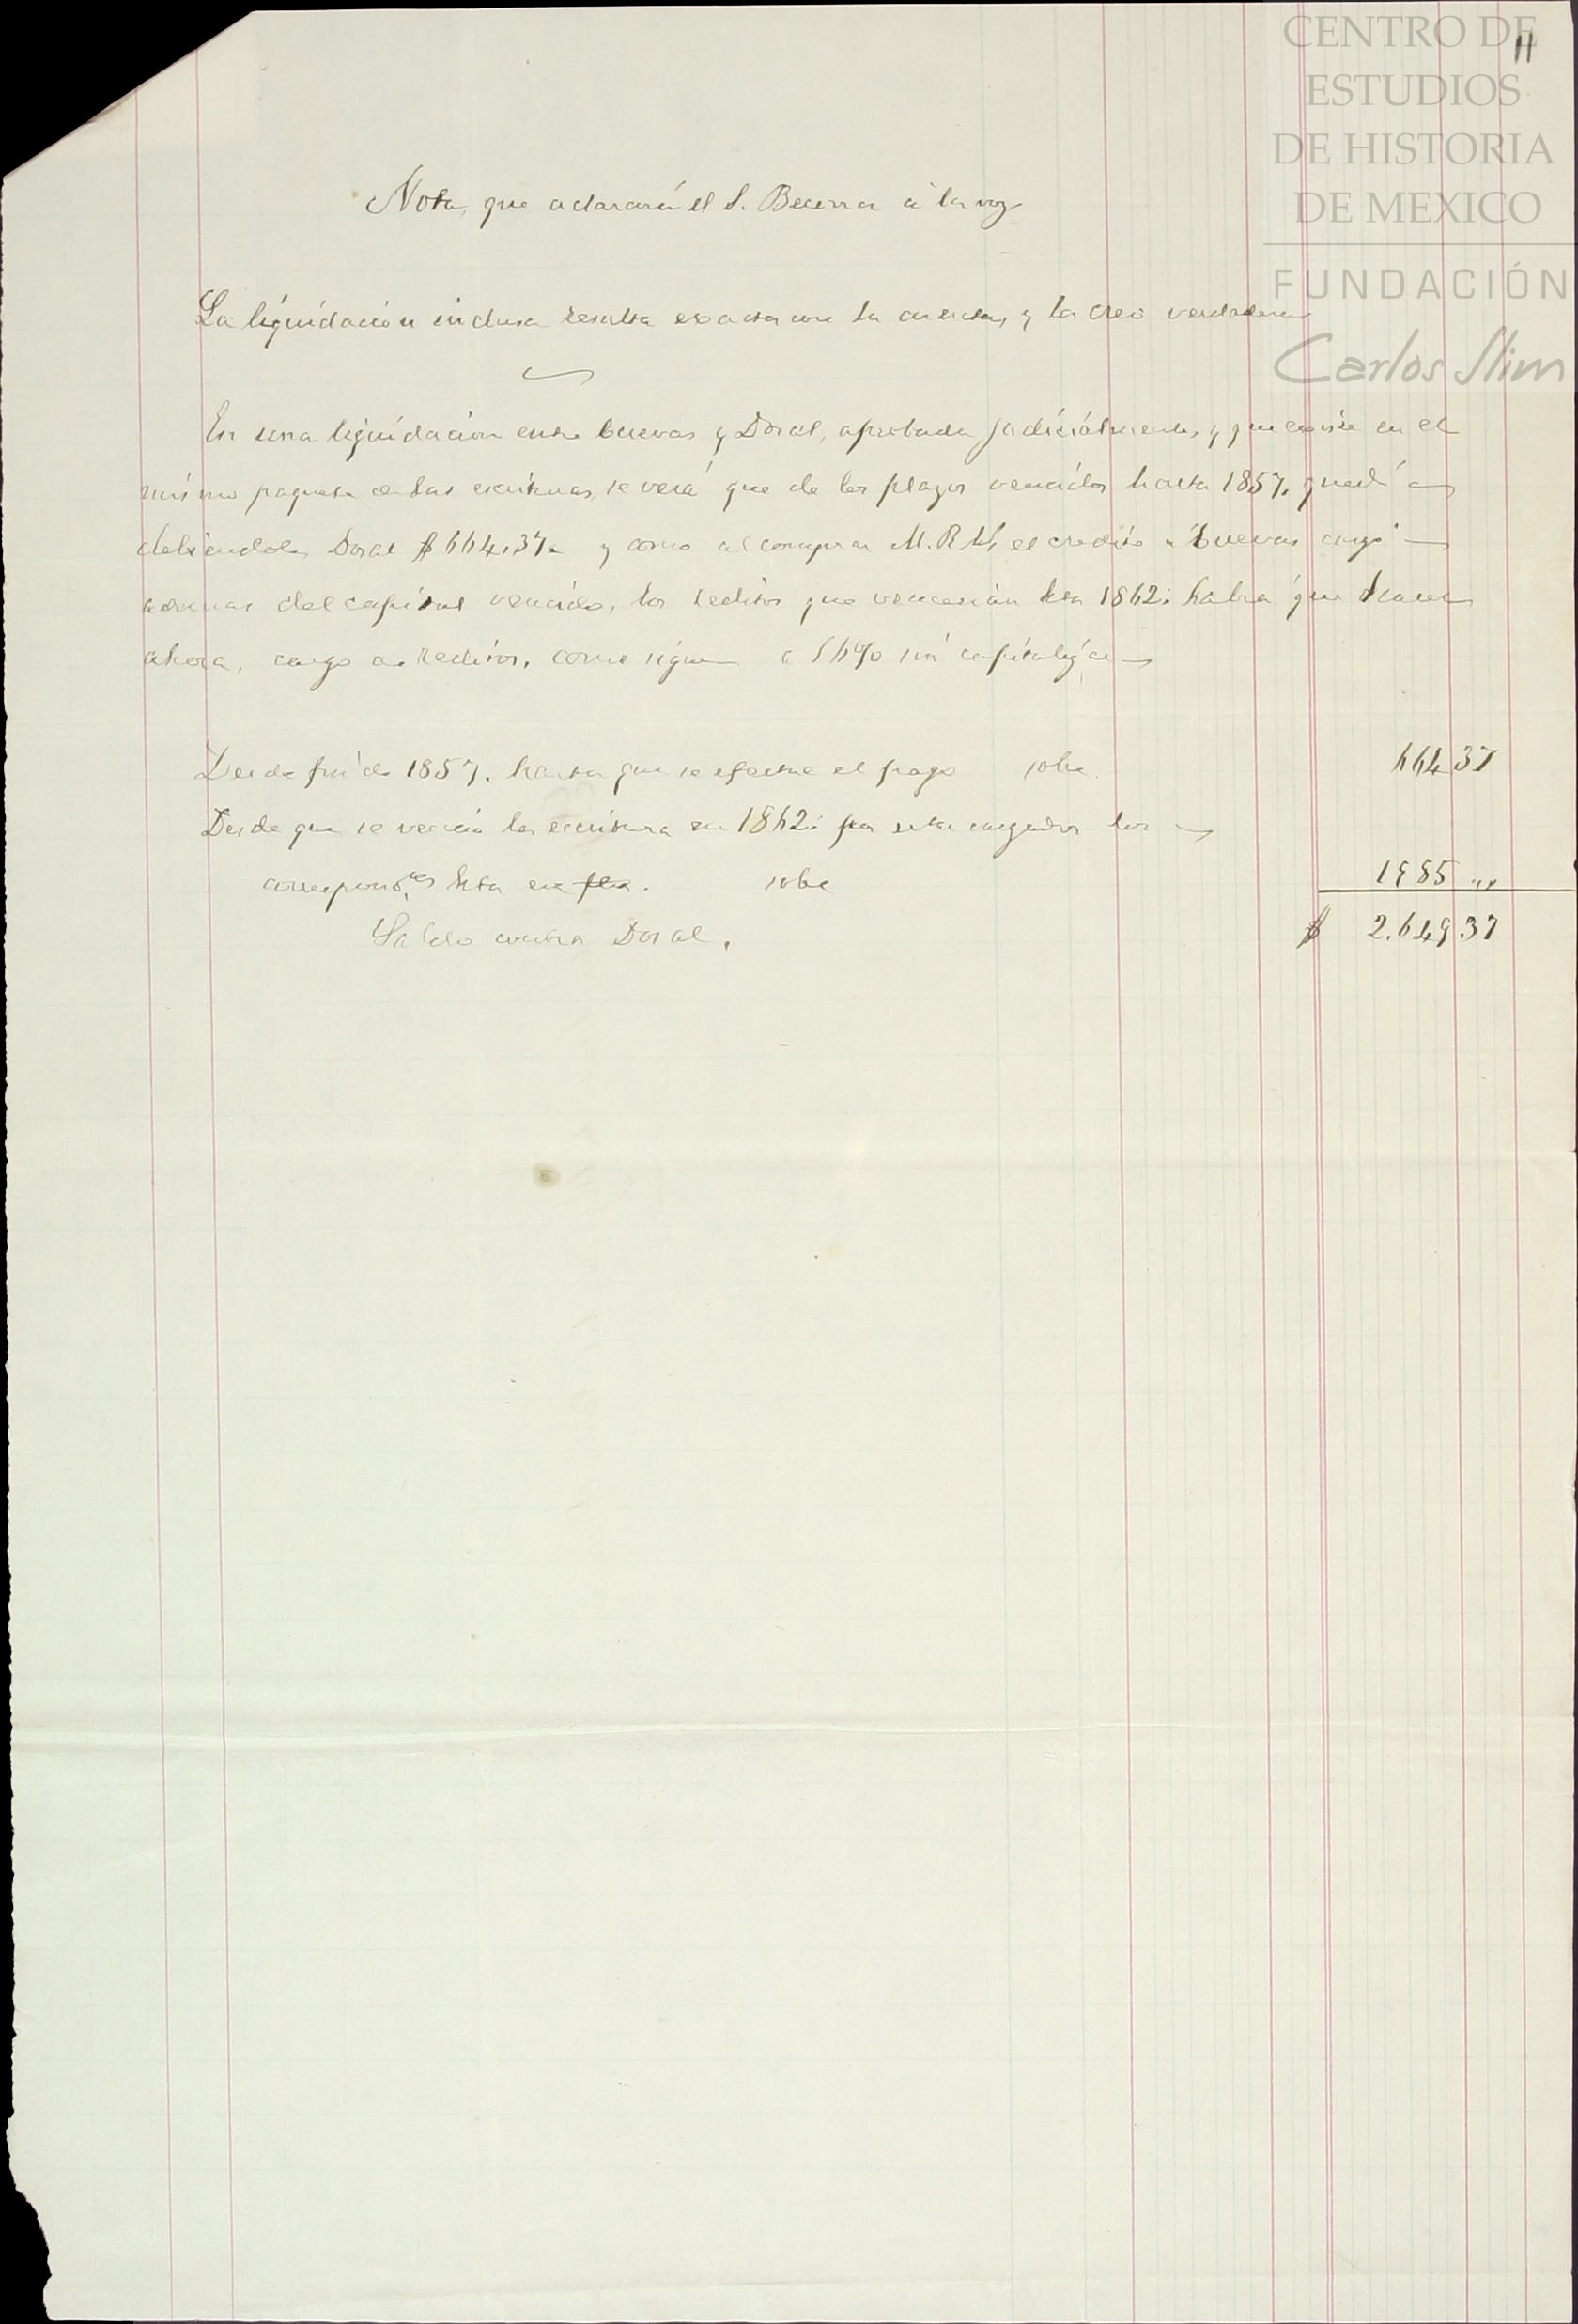 CENTRO DE
ESTUDIOS
DE HISTORIA
DE MEXICO
FUNDACIÓN
Carlos Slim
11
Nota, que aclarará el S. Becerra á la voz
La liquidación inclusa resulta exacta con la cuenta, y la creo verdadera
En una liquidación entre Cuevas y Dosal, aprobada judicialmente, y que existe en el
mismo paquete de las escrituras, se verá que de los plazos vencidos hasta 1857, quedó
debiendole Dosal $664.37 y como al comprar M. R. el credito a Cuevas cargó
ademas del capital vencido, los reditos que vencerian hta 1862. habrá que hacer
ahora, cargo de reditos, como sigue a 6% sin capitalizar
Desde fin de 1857, hasta que se efectue el pago sobe 664 37
Desde que se venció la escritura en 1862. por estar cargados los
correspond.tes hta esa fha. sobe 1985 ,,
Saldo contra Dosal. $ 2.649.37